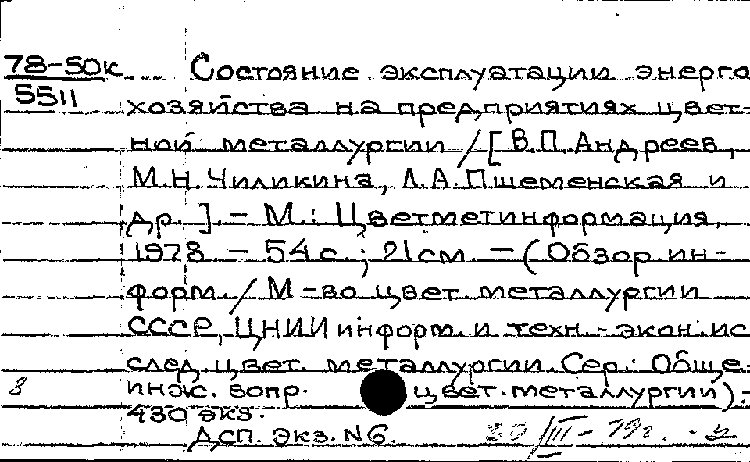 78-50к Состояние эксплуатации энерго
5511 хозяйства на предприятиях цвет-
ной металлургии / [В.П. Андреев,
М.Н. Чиликина, Л.А. Пшеменская и
др.]. – М.: Цветметинформация,
1978 – 54 с.; 21 см. – (Обзор. ин-
форм. / М-во цвет. металлургии
СССР, ЦНИИ информ. и техн.-экон. ис
след. цвет. металлургии. Сер.: Обще-
инж. вопр. цвет. металлургии). –
430 экз.
ДСП. Экз. N6. 30/III – 79г.